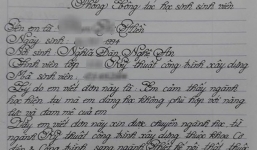 Phòng Công tác học sinh sinh viên
Tên em là Hiền
Ngày sinh
Nơi sinh Nghĩa Đàn, Nghệ An
Sinh viên lớp Kỹ thuật công trình xây dựng
Mã sinh viên:
Lý do em viết đơn này là: Em cảm thấy ngành
học hiện tại mà em đang học không phù hợp với năng
lực và đam mê của em
Nay em viết đơn này xin được chuyển ngành học từ
ngành Kỹ thuật công trình xây dựng thuộc khoa Cơ
xây dựng sang ngành nội thất thuộc